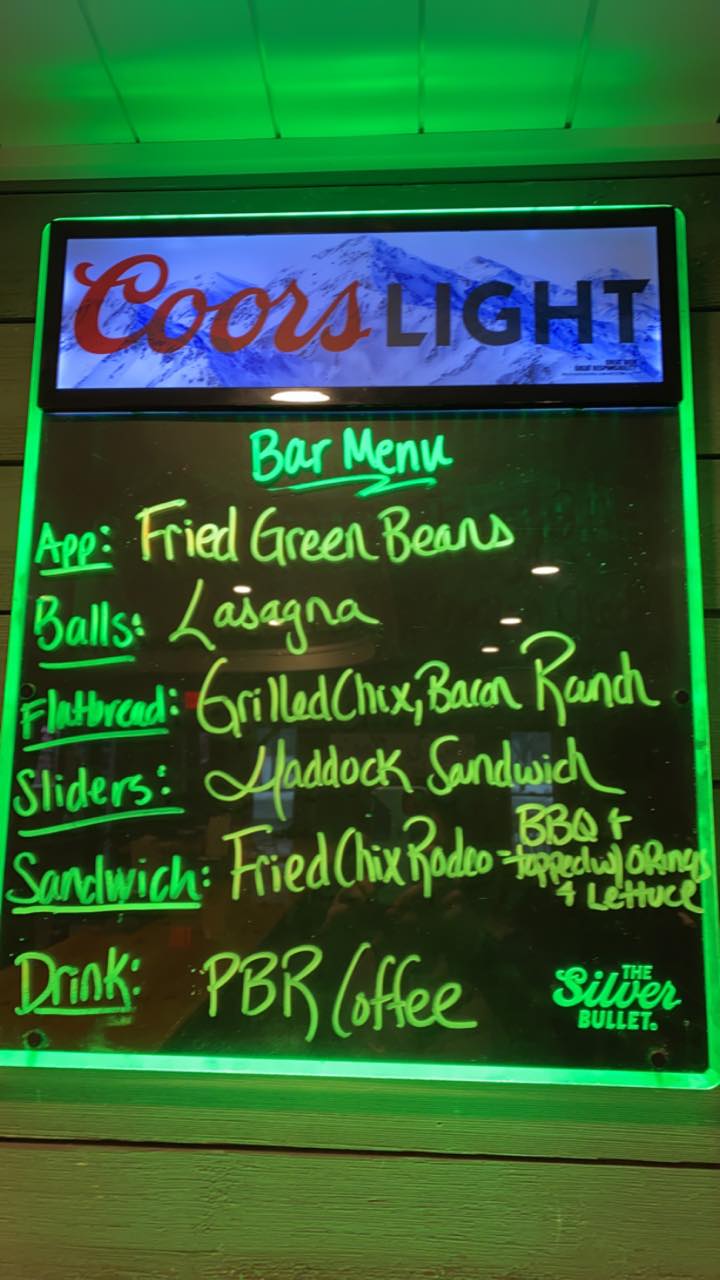 Coors LIGHT
GREAT BEER
GREAT RESPONSIBILITY
Bar Menu
App: Fried Green Beans
Balls: Lasagna
Flatbread: Grilled Chix, Bacon Ranch
Sliders: Haddock Sandwich
Sandwich: Fried Chix Rodeo - BBQ +
topped w/ O Rings
+ Lettuce
Drink: PBR Coffee
THE
Silver
BULLET.